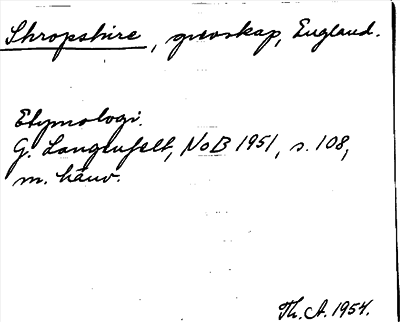 Shropshire, grevskap, England.
Etymologi.
G. Langenfelt, NoB 1951, s. 108,
m. hänv.
Th. A. 1954.